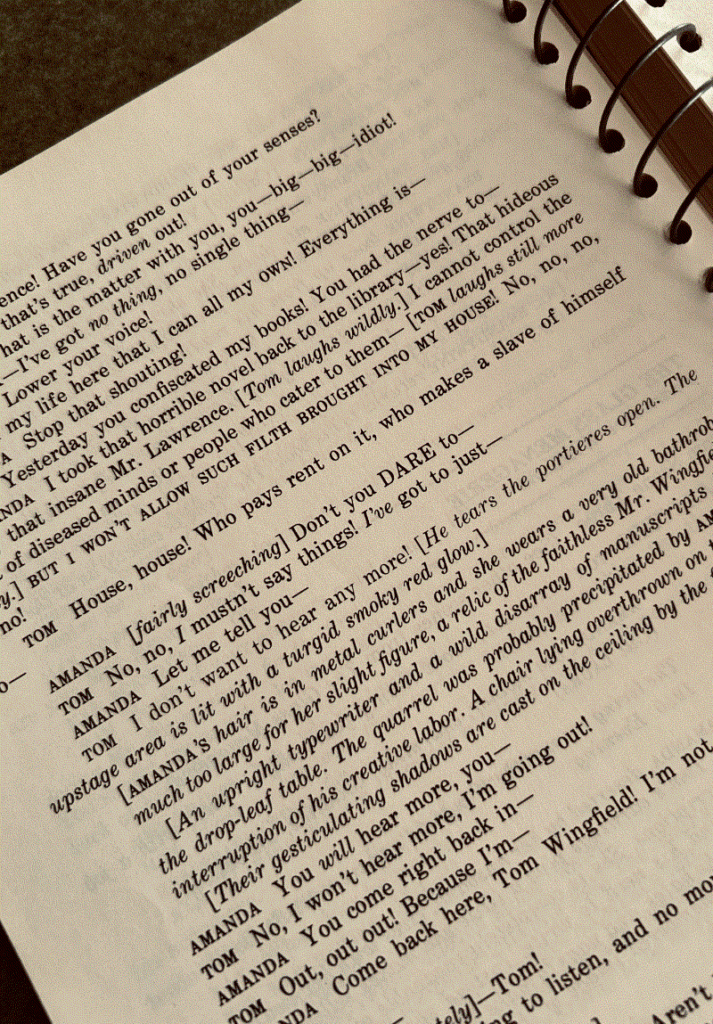 ence! Have you gone out of your senses?
that's true, driven out!
hat is the matter with you, you—big—big—idiot!
—I've got no thing, no single thing—
Lower your voice!
my life here that I can all my own! Everything is—
A Stop that shouting!
Yesterday you confiscated my books! You had the nerve to—
NDA I took that horrible novel back to the library—yes! That hideous
that insane Mr. Lawrence. [Tom laughs wildly.] I cannot control the
of diseased minds or people who cater to them— [TOM laughs still more
y.] BUT I WON'T ALLOW SUCH FILTH BROUGHT INTO MY HOUSE! No, no, no,
no!
TOM House, house! Who pays rent on it, who makes a slave of himself
o—
AMANDA [fairly screeching] Don't you DARE to—
TOM No, no, I mustn't say things! I've got to just—
AMANDA Let me tell you—
TOM I don't want to hear any more! [He tears the portieres open. The
upstage area is lit with a turgid smoky red glow.]
[AMANDA'S hair is in metal curlers and she wears a very old bathrob
much too large for her slight figure, a relic of the faithless Mr. Wingfie
[An upright typewriter and a wild disarray of manuscripts
the drop-leaf table. The quarrel was probably precipitated by AM
interruption of his creative labor. A chair lying overthrown on t
[Their gesticulating shadows are cast on the ceiling by the
AMANDA You will hear more, you—
TOM No, I won't hear more, I'm going out!
AMANDA You come right back in—
TOM Out, out out! Because I'm—
NDA Come back here, Tom Wingfield! I'm not
tely]—Tom!
ng to listen, and no mo
Aren't